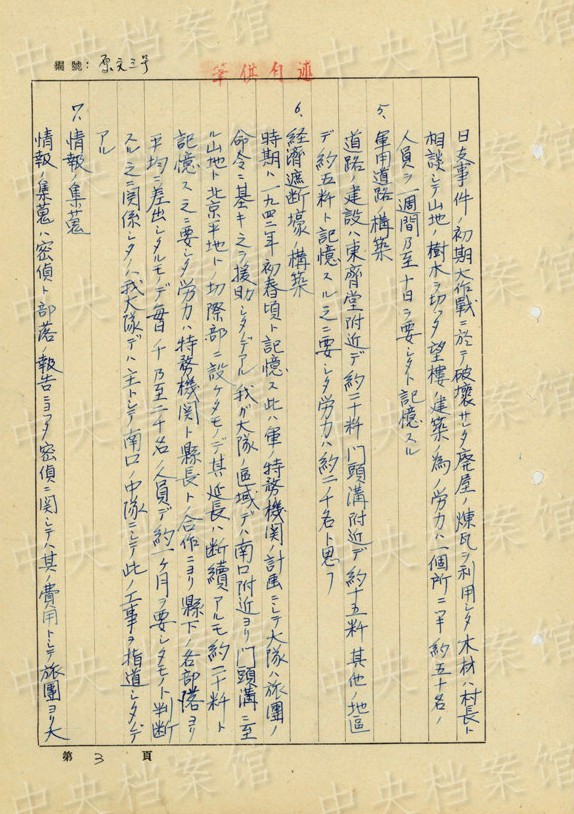 編號：原文三号
筆供自述
日支事件ノ初期大作戦ニ於テ破壊サレタ廃屋ノ煉瓦ヲ利用シタ木材ハ村長ト
相談シテ山地ノ樹木ヲ切ッタ望樓ノ建築ノ為ノ労力ハ一個所ニツキ約五十名ノ
人員ヲ一週間乃至十日ヲ要シタト記憶スル
5、軍用道路ノ構築
道路ノ建設ハ東齊堂附近デ約二十粁門頭溝附近デ約十五粁其他ノ地區
デ約五粁ト記憶スル之ニ要シタ労力ハ約二千名ト思フ
6、経濟遮断壕ノ構築
時期ハ一九四二年初春頃ト記憶ス此ハ軍ノ特務機関ノ計画ニシテ大隊ハ旅團ノ
命令ニ基キ之ヲ援助シタノデアル我ガ大隊ノ區域デハ南口附近ヨリ門頭溝ニ至
ル山地ト北京平地トノ切際部ニ設ケタモノデ其延長ハ断續アルモ約二十粁ト
記憶ス之ニ要シタ労力ハ特務機関ト縣長トノ合作ニヨリ縣下ノ各部落ヨリ
平均ニ差出シタルモノデ毎日千乃至二千名ノ人員デ約一ケ月ヲ要シタモノト判断
スル之ニ関係シタノハ我大隊デハ主トシテ南口ノ中隊ニシテ此ノ工事ヲ指道シタノデ
アル
7、情報ノ集蒐
情報ノ集蒐ハ密偵ト部落ノ報告ニヨッタ密偵ニ関シテハ其ノ費用トシテ旅團ヨリ大
第 3 頁
中央档案馆